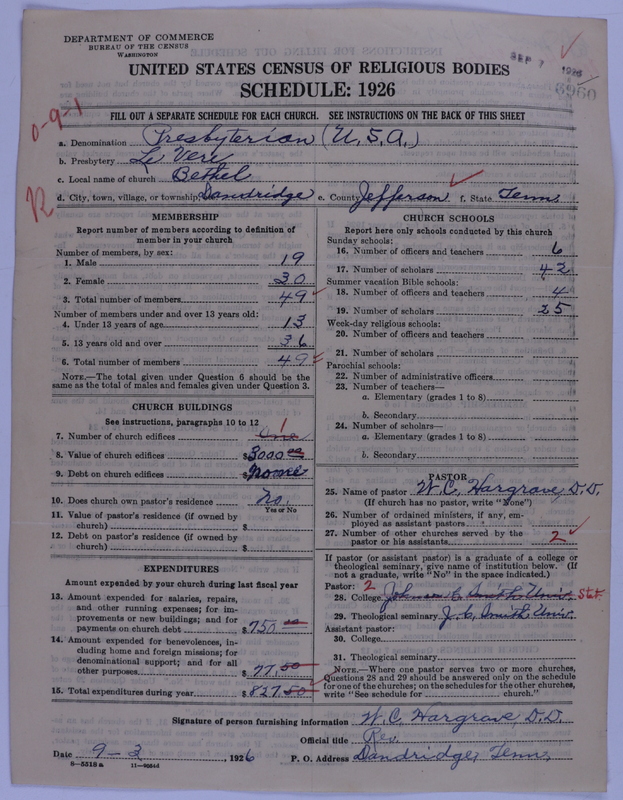 DEPARTMENT OF COMMERCE
BUREAU OF THE CENSUS
WASHINGTON
SEP 7 1926
6960
UNITED STATES CENSUS OF RELIGIOUS BODIES
SCHEDULE: 1926
FILL OUT A SEPARATE SCHEDULE FOR EACH CHURCH. SEE INSTRUCTIONS ON THE BACK OF THIS SHEET
0-9-1
a. Denomination Presbyterian (U.S.A.)
b. Presbytery Le Vere
c. Local name of church Bethel
d. City, town, village, or township Dandridge e. County Jefferson f. State Tenn.
R
MEMBERSHIP
Report number of members according to definition of
member in your church
Number of members, by sex:
1. Male 19
2. Female 30
3. Total number of members 49
Number of members under and over 13 years old:
4. Under 13 years of age 13
5. 13 years old and over 36
6. Total number of members 49
NOTE.—The total given under Question 6 should be the
same as the total of males and females given under Question 3.
CHURCH BUILDINGS
See instructions, paragraphs 10 to 12
1
7. Number of church edifices One
8. Value of church edifices $3000 00
9. Debt on church edifices $None
10. Does church own pastor's residence No.
Yes or No
11. Value of pastor's residence (if owned by
church) $
12. Debt on pastor's residence (if owned by
church) $
EXPENDITURES
Amount expended by your church during last fiscal year
13. Amount expended for salaries, repairs,
and other running expenses; for im-
provements or new buildings; and for
payments on church debt $750 00
14. Amount expended for benevolences, in-
cluding home and foreign missions; for
denominational support; and for all
other purposes $77.50
15. Total expenditures during year $827.50
CHURCH SCHOOLS
Report here only schools conducted by this church
Sunday schools:
16. Number of officers and teachers 6
17. Number of scholars 42
Summer vacation Bible schools:
18. Number of officers and teachers 4
19. Number of scholars 25
Week-day religious schools:
20. Number of officers and teachers
21. Number of scholars
Parochial schools:
22. Number of administrative officers
23. Number of teachers—
a. Elementary (grades 1 to 8)
b. Secondary
24. Number of scholars—
a. Elementary (grades 1 to 8)
b. Secondary
PASTOR
25. Name of pastor W. C. Hargrave, D.D.
(If church has no pastor, write "None")
26. Number of ordained ministers, if any, em-
ployed as assistant pastors
27. Number of other churches served by the
pastor or his assistants 2
If pastor (or assistant pastor) is a graduate of a college or
theological seminary, give name of institution below. (If
not a graduate, write "No" in the space indicated.)
Pastor: 2
28. College Johnson C. Smith Univ.
29. Theological seminary J. C. Smith Univ.
Assistant pastor:
30. College
31. Theological seminary
NOTE.—Where one pastor serves two or more churches,
Questions 28 and 29 should be answered only on the schedule
for one of the churches; on the schedules for the other churches,
write "See schedule for church."
Signature of person furnishing information W. C. Hargrave, D.D.
Official title Rev.
Date 9-3, 1926 P. O. Address Dandridge, Tenn.
8-5518a 11-9664d